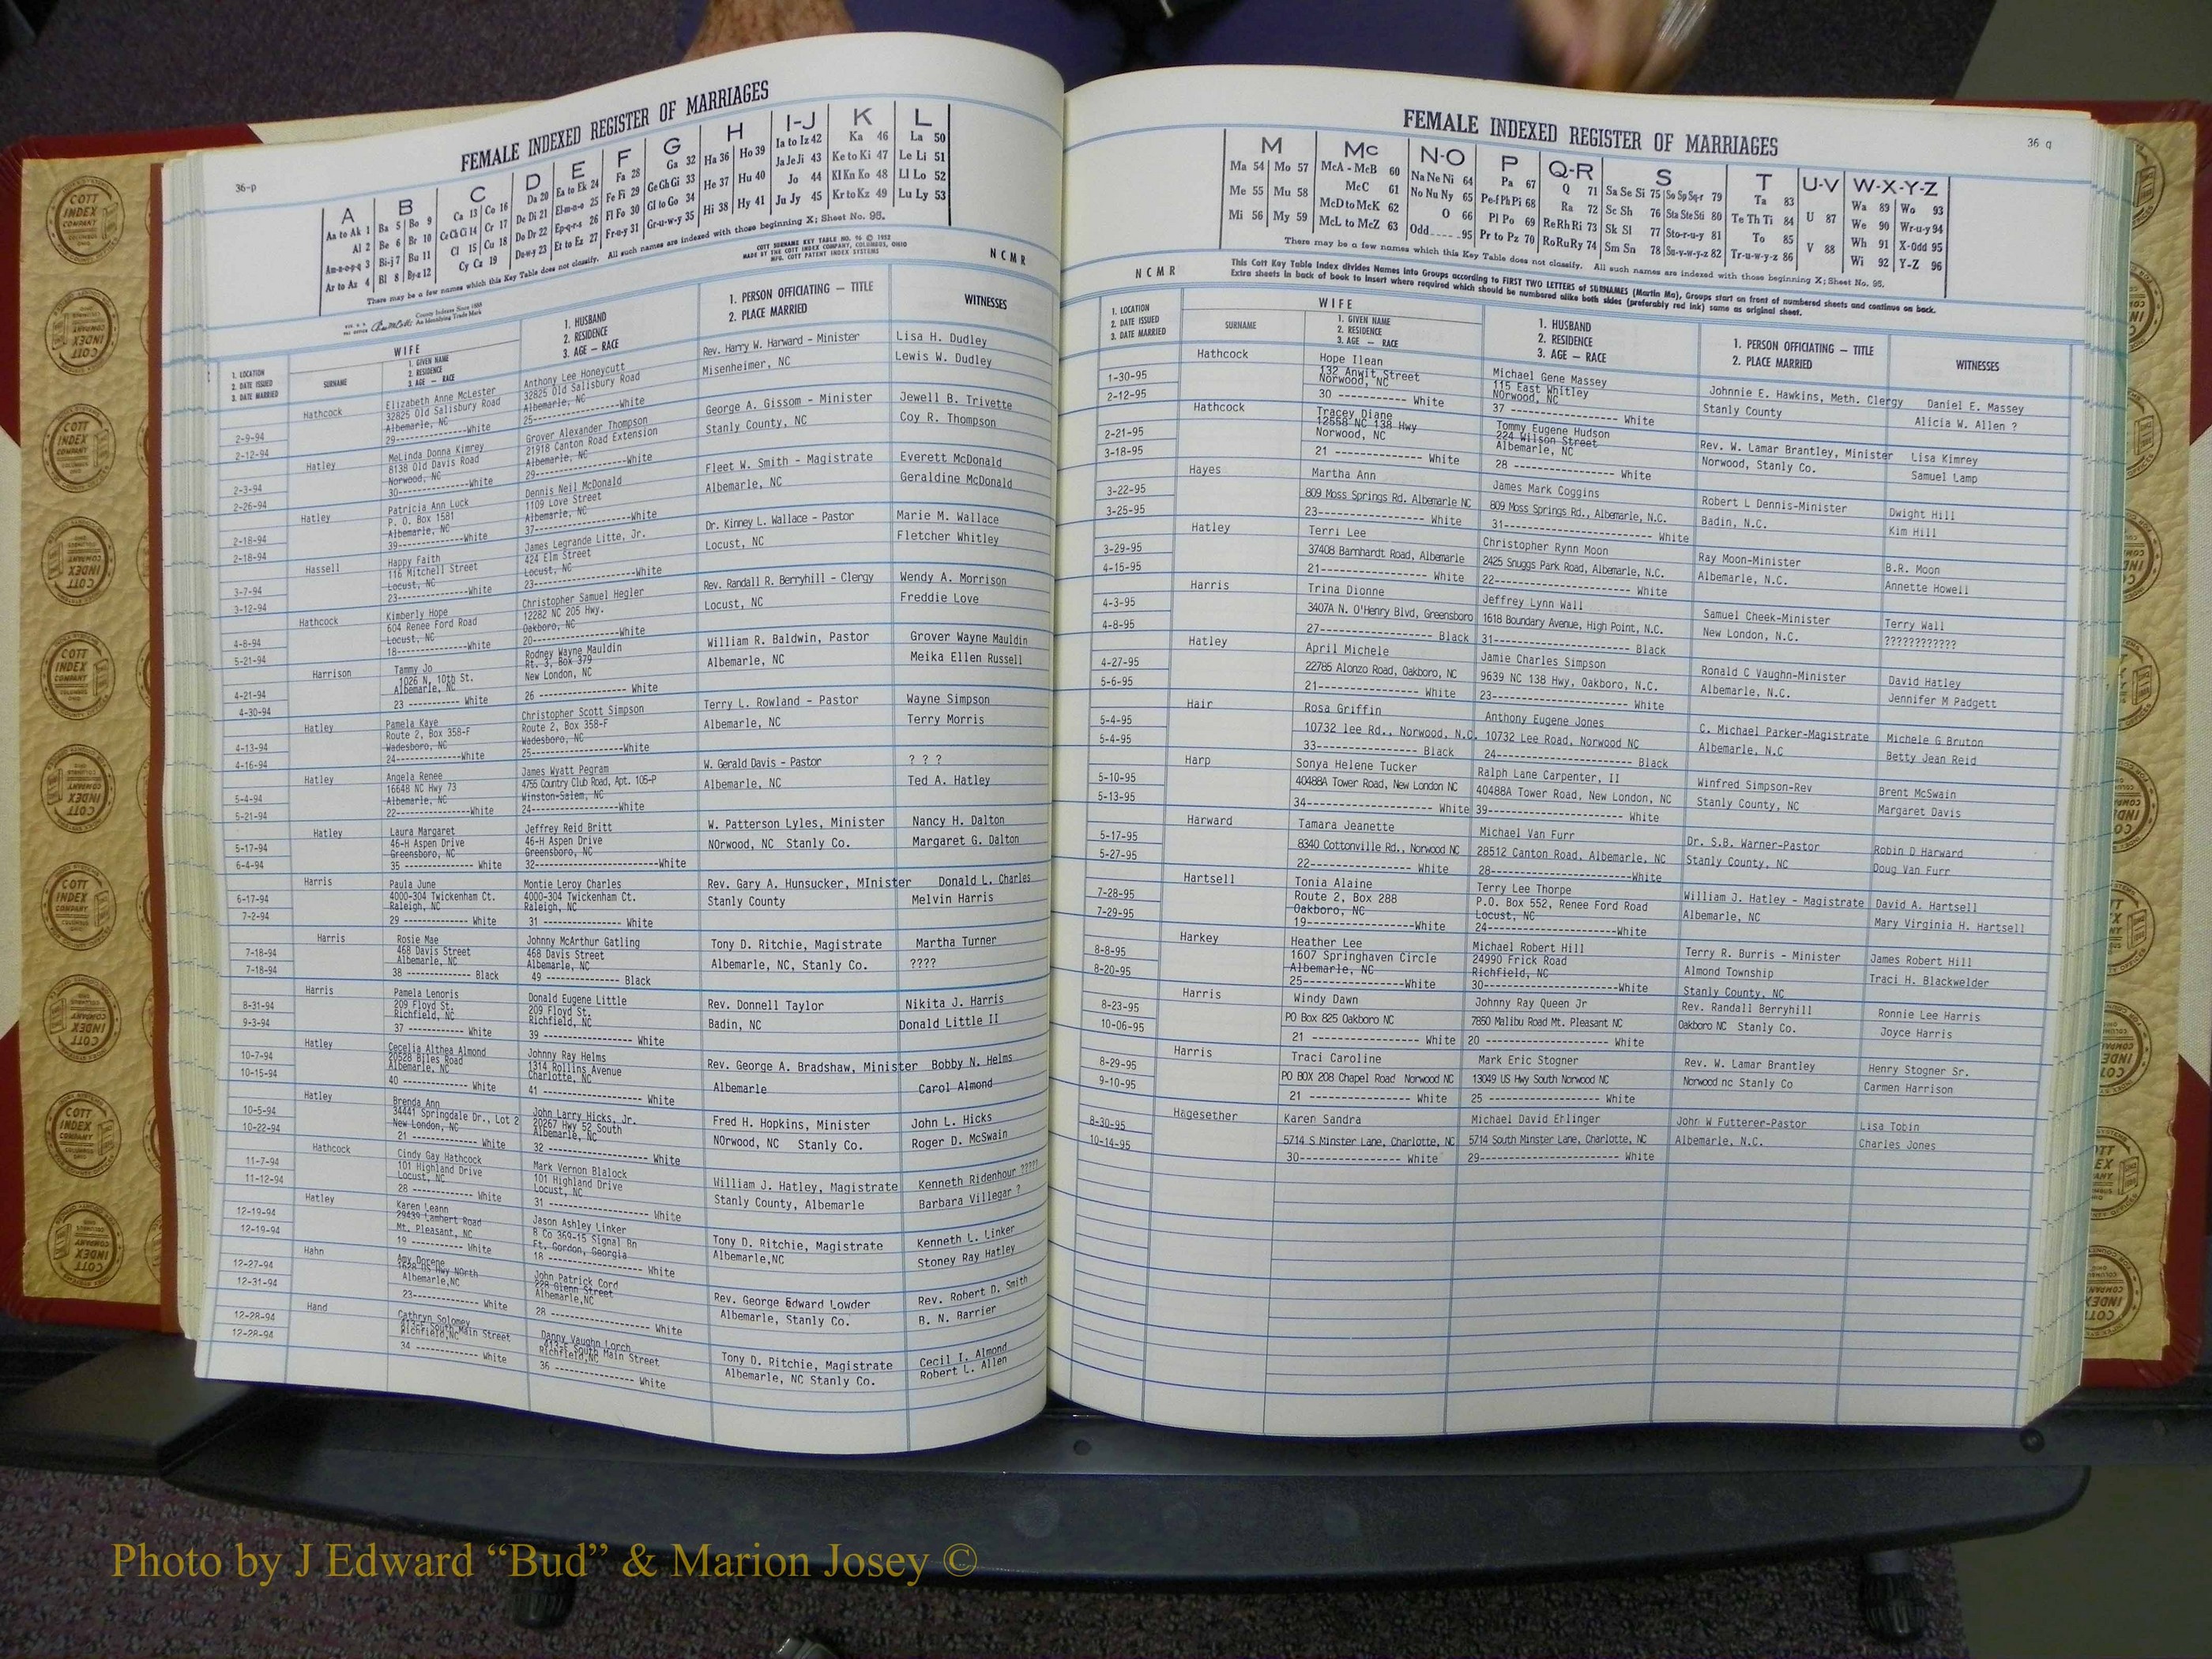 36-p
FEMALE INDEXED REGISTER OF MARRIAGES
A B C D E F G H I-J K L
Aa to Ak 1 Ba 5 Bo 9 Ca 13 Co 16 Da 20 Ea to Ek 24 Fa 28 Ga 32 Ha 36 Ho 39 Ia to Iz 42 Ka 46 La 50
Al 2 Be 6 Br 10 Ce Ch Ci 14 Cr 17 De Di 21 El-m-n-o 25 Fe Fi 29 Ge Gh Gi 33 He 37 Hu 40 Ja Je Ji 43 Ke to Ki 47 Le Li 51
Am-n-o-p-q 3 Bi-j 7 Bu 11 Cl 15 Cu 18 Do Dr 22 Ep-q-r-s 26 Fl Fo 30 Gl to Go 34 Hi 38 Hy 41 Jo 44 Kl Kn Ko 48 Ll Lo 52
Ar to Az 4 Bl 8 By-z 12 Cy Cz 19 Du-w-y 23 Et to Ez 27 Fr-u-y 31 Gr-u-w-y 35 Ju Jy 45 Kr to Kz 49 Lu Ly 53
There may be a few names which this Key Table does not classify. All such names are indexed with those beginning X; Sheet No. 95.
COTT SURNAME KEY TABLE NO. 96 © 1952
MADE BY THE COTT INDEX COMPANY, COLUMBUS, OHIO
MFG. COTT PATENT INDEX SYSTEMS
NCMR
County Indexes Since 1888
An Identifying Trade Mark
1. LOCATION
2. DATE ISSUED
3. DATE MARRIED
WIFE
SURNAME
1. GIVEN NAME
2. RESIDENCE
3. AGE — RACE
1. HUSBAND
2. RESIDENCE
3. AGE — RACE
1. PERSON OFFICIATING — TITLE
2. PLACE MARRIED
WITNESSES
Hathcock Elizabeth Anne McLester Anthony Lee Honeycutt Rev. Harry W. Harward - Minister Lisa H. Dudley
32825 Old Salisbury Road 32825 Old Salisbury Road Misenheimer, NC Lewis W. Dudley
2-9-94 Albemarle, NC Albemarle, NC
2-12-94 29--------------White 25--------------White
Hatley MeLinda Donna Kimrey Grover Alexander Thompson George A. Gissom - Minister Jewell B. Trivette
8138 Old Davis Road 21918 Canton Road Extension Stanly County, NC Coy R. Thompson
2-3-94 Norwood, NC Albemarle, NC
2-26-94 30--------------White 29--------------White
Hatley Patricia Ann Luck Dennis Neil McDonald Fleet W. Smith - Magistrate Everett McDonald
P. O. Box 1581 1109 Love Street Albemarle, NC Geraldine McDonald
2-18-94 Albemarle, NC Albemarle, NC
2-18-94 39--------------White 37--------------White
Hassell Happy Faith James Legrande Litte, Jr. Dr. Kinney L. Wallace - Pastor Marie M. Wallace
116 Mitchell Street 424 Elm Street Locust, NC Fletcher Whitley
3-7-94 Locust, NC Locust, NC
3-12-94 23--------------White 23--------------White
Hathcock Kimberly Hope Christopher Samuel Hegler Rev. Randall R. Berryhill - Clergy Wendy A. Morrison
604 Renee Ford Road 12282 NC 205 Hwy. Locust, NC Freddie Love
4-8-94 Locust, NC Oakboro, NC
5-21-94 18--------------White 20--------------White
Harrison Tammy Jo Rodney Wayne Mauldin William R. Baldwin, Pastor Grover Wayne Mauldin
1026 N. 10th St. Rt. 3, Box 379 Albemarle, NC Meika Ellen Russell
4-21-94 Albemarle, NC New London, NC
4-30-94 23 ------------ White 26 -------------- White
Hatley Pamela Kaye Christopher Scott Simpson Terry L. Rowland - Pastor Wayne Simpson
Route 2, Box 358-F Route 2, Box 358-F Albemarle, NC Terry Morris
4-13-94 Wadesboro, NC Wadesboro, NC
4-16-94 24--------------White 25--------------White
Hatley Angela Renee James Wyatt Pegram W. Gerald Davis - Pastor ? ? ?
16648 NC Hwy 73 4755 Country Club Road, Apt. 105-P Albemarle, NC Ted A. Hatley
5-4-94 Albemarle, NC Winston-Salem, NC
5-21-94 22--------------White 24--------------White
Hatley Laura Margaret Jeffrey Reid Britt W. Patterson Lyles, Minister Nancy H. Dalton
5-17-94 46-H Aspen Drive 46-H Aspen Drive NOrwood, NC Stanly Co. Margaret G. Dalton
6-4-94 Greensboro, NC Greensboro, NC
35 ------------ White 32--------------White
Harris Paula June Montie Leroy Charles Rev. Gary A. Hunsucker, MInister Donald L. Charles
6-17-94 4000-304 Twickenham Ct. 4000-304 Twickenham Ct. Stanly County Melvin Harris
7-2-94 Raleigh, NC Raleigh, NC
29 ------------ White 31 ------------ White
Harris Rosie Mae Johnny McArthur Gatling Tony D. Ritchie, Magistrate Martha Turner
7-18-94 468 Davis Street 468 Davis Street Albemarle, NC, Stanly Co. ????
7-18-94 Albemarle, NC Albemarle, NC
38 ------------ Black 49 ------------ Black
Harris Pamela Lenoris Donald Eugene Little Rev. Donnell Taylor Nikita J. Harris
8-31-94 209 Floyd St. 209 Floyd St. Badin, NC Donald Little II
9-3-94 Richfield, NC Richfield, NC
37 ------------ White 39 ------------ White
Hatley Cecelia Althea Almond Johnny Ray Helms Rev. George A. Bradshaw, Minister Bobby N. Helms
10-7-94 20528 Biles Road 1314 Rollins Avenue Albemarle Carol Almond
10-15-94 Albemarle, NC Charlotte, NC
40 ------------ White 41 -------------- White
Hatley Brenda Ann John Larry Hicks, Jr. Fred H. Hopkins, Minister John L. Hicks
10-5-94 34441 Springdale Dr., Lot 2 20267 Hwy 52 South NOrwood, NC Stanly Co. Roger D. McSwain
10-22-94 New London, NC Albemarle, NC
21 -------------- White 32 -------------- White
Hathcock Cindy Gay Hathcock Mark Vernon Blalock William J. Hatley, Magistrate Kenneth Ridenhour ?????
11-7-94 101 Highland Drive 101 Highland Drive Stanly County, Albemarle Barbara Villegar ?
11-12-94 Locust, NC Locust, NC
28 ------------ White 31 -------------- White
Hatley Karen Leann Jason Ashley Linker Tony D. Ritchie, Magistrate Kenneth L. Linker
12-19-94 29439 Lambert Road B Co 369-15 Signal Bn Albemarle,NC Stoney Ray Hatley
12-19-94 Mt. Pleasant, NC Ft. Gordon, Georgia
19 ------------ White 18 -------------- White
Hahn Amy Dorene John Patrick Cord Rev. George Edward Lowder Rev. Robert D. Smith
12-27-94 US Hwy NOrth 228 Glenn Street Albemarle, Stanly Co. B. N. Barrier
12-31-94 Albemarle,NC Albemarle,NC
23------------ White 28 -------------- White
Hand Cathryn Solomey Danny Vaughn Lorch Tony D. Ritchie, Magistrate Cecil I. Almond
12-28-94 413-E South Main Street 413-E South Main Street Albemarle, NC Stanly Co. Robert L. Allen
12-28-94 Richfield,NC Richfield,NC
34 -------------- White 36 -------------- White
FEMALE INDEXED REGISTER OF MARRIAGES
36 q
M Mc N-O P Q-R S T U-V W-X-Y-Z
Ma 54 Mo 57 McA - McB 60 Na Ne Ni 64 Pa 67 Q 71 Sa Se Si 75 So Sp Sq-r 79 Ta 83 U 87 Wa 89 Wo 93
Me 55 Mu 58 McC 61 No Nu Ny 65 Pe-f Ph Pi 68 Ra 72 Sc Sh 76 Sta Ste Sti 80 Te Th Ti 84 V 88 We 90 Wr-u-y 94
Mi 56 My 59 McD to McK 62 O 66 Pl Po 69 Re Rh Ri 73 Sk Sl 77 Sto-r-u-y 81 To 85 Wh 91 X-Odd 95
McL to McZ 63 Odd 95 Pr to Pz 70 Ro Ru Ry 74 Sm Sn 78 Su-v-w-y-z 82 Tr-u-w-y-z 86 Wi 92 Y-Z 96
There may be a few names which this Key Table does not classify. All such names are indexed with those beginning X; Sheet No. 95.
NCMR
This Cott Key Table Index divides Names into Groups according to FIRST TWO LETTERS of SURNAMES (Martin Ma), Groups start on front of numbered sheets and continue on back.
Extra sheets in back of book to insert where required which should be numbered alike both sides (preferably red ink) same as original sheet.
1. LOCATION
2. DATE ISSUED
3. DATE MARRIED
WIFE
SURNAME
1. GIVEN NAME
2. RESIDENCE
3. AGE — RACE
1. HUSBAND
2. RESIDENCE
3. AGE — RACE
1. PERSON OFFICIATING — TITLE
2. PLACE MARRIED
WITNESSES
Hathcock Hope Ilean Michael Gene Massey Johnnie E. Hawkins, Meth. Clergy Daniel E. Massey
1-30-95 132 Anwit Street 115 East Whitley Stanly County Alicia W. Allen ?
2-12-95 Norwood, NC NOrwood, NC
30 ------------ White 37 -------------- White
Hathcock Tracey Diane Tommy Eugene Hudson Rev. W. Lamar Brantley, Minister Lisa Kimrey
2-21-95 12558 NC 138 Hwy 224 Wilson Street Norwood, Stanly Co. Samuel Lamp
3-18-95 Norwood, NC Albemarle, NC
21 -------------- White 28 -------------- White
Hayes Martha Ann James Mark Coggins Robert L Dennis-Minister Dwight Hill
3-22-95 809 Moss Springs Rd. Albemarle NC 809 Moss Springs Rd., Albemarle, N.C. Badin, N.C. Kim Hill
3-25-95 23---------------- White 31---------------- White
Hatley Terri Lee Christopher Rynn Moon Ray Moon-Minister B.R. Moon
3-29-95 37408 Barnhardt Road, Albemarle 2425 Snuggs Park Road, Albemarle, N.C. Albemarle, N.C. Annette Howell
4-15-95 21---------------- White 22---------------- White
Harris Trina Dionne Jeffrey Lynn Wall Samuel Cheek-Minister Terry Wall
4-3-95 3407A N. O'Henry Blvd, Greensboro 1618 Boundary Avenue, High Point, N.C. New London, N.C. ????????????
4-8-95 27---------------- Black 31---------------- Black
Hatley April Michele Jamie Charles Simpson Ronald C Vaughn-Minister David Hatley
4-27-95 22785 Alonzo Road, Oakboro, NC 9639 NC 138 Hwy, Oakboro, N.C. Albemarle, N.C. Jennifer M Padgett
5-6-95 21---------------- White 23---------------- White
Hair Rosa Griffin Anthony Eugene Jones C. Michael Parker-Magistrate Michele G Bruton
5-4-95 10732 lee Rd., Norwood, N.C. 10732 Lee Road, Norwood NC Albemarle, N.C Betty Jean Reid
5-4-95 33---------------- Black 24---------------- Black
Harp Sonya Helene Tucker Ralph Lane Carpenter, II Winfred Simpson-Rev Brent McSwain
5-10-95 40488A Tower Road, New London NC 40488A Tower Road, New London, NC Stanly County, NC Margaret Davis
5-13-95 34---------------- White 39---------------- White
Harward Tamara Jeanette Michael Van Furr Dr. S.B. Warner-Pastor Robin D Harward
5-17-95 8340 Cottonville Rd., Norwood NC 28512 Canton Road, Albemarle, NC Stanly County, NC Doug Van Furr
5-27-95 22---------------- White 28----------------White
Hartsell Tonia Alaine Terry Lee Thorpe William J. Hatley - Magistrate David A. Hartsell
7-28-95 Route 2, Box 288 P.O. Box 552, Renee Ford Road Albemarle, NC Mary Virginia H. Hartsell
7-29-95 Oakboro, NC Locust, NC
19--------------White 24--------------White
Harkey Heather Lee Michael Robert Hill Terry R. Burris - Minister James Robert Hill
8-8-95 1607 Springhaven Circle 24990 Frick Road Almond Township Traci H. Blackwelder
8-20-95 Albemarle, NC Richfield, NC Stanly County, NC
25--------------White 30--------------White
Harris Windy Dawn Johnny Ray Queen Jr Rev. Randall Berryhill Ronnie Lee Harris
8-23-95 PO Box 825 Oakboro NC 7850 Malibu Road Mt. Pleasant NC Oakboro NC Stanly Co. Joyce Harris
10-06-95 21 -------------- White 20 -------------- White
Harris Traci Caroline Mark Eric Stogner Rev. W. Lamar Brantley Henry Stogner Sr.
8-29-95 PO BOX 208 Chapel Road Norwood NC 13049 US Hwy South Norwood NC Norwood nc Stanly Co Carmen Harrison
9-10-95 21 -------------- White 25 -------------- White
Hagesether Karen Sandra Michael David Ehlinger John W Futterer-Pastor Lisa Tobin
8-30-95 5714 S Minster Lane, Charlotte, NC 5714 South Minster Lane, Charlotte, NC Albemarle, N.C. Charles Jones
10-14-95 30---------------- White 29---------------- White
COTT INDEX COMPANY COLUMBUS OHIO
Photo by J Edward “Bud” & Marion Josey ©